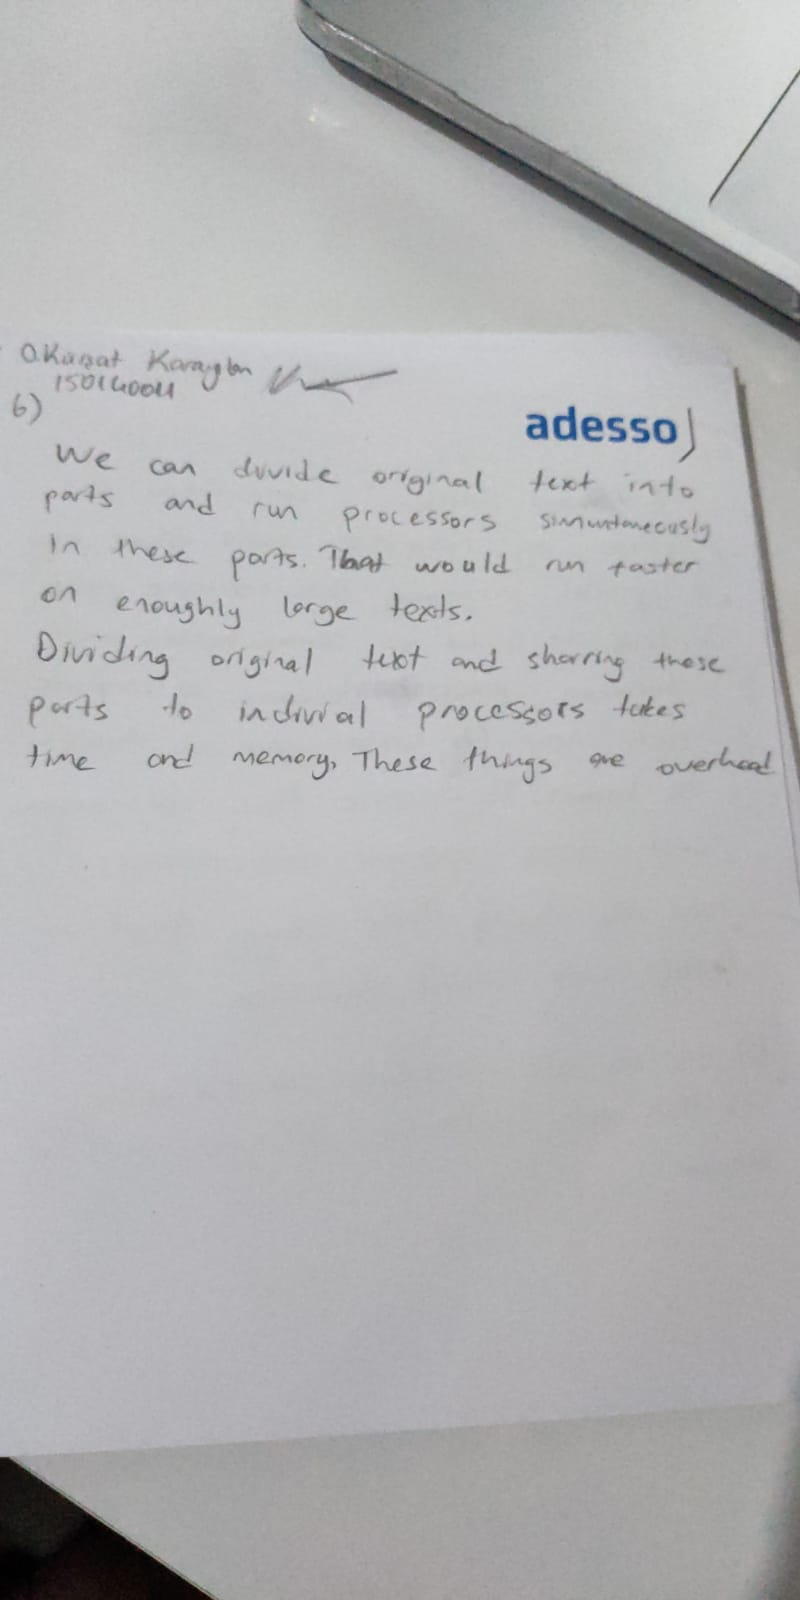 O.Kanat
150140041
6)
adesso
We can divide original text into
parts and run processors simuntaneously
in these parts. That would run faster
on enoughly large texts.
Dividing original text and sharring these
parts to indivial processors takes
time and memory, These things are overhead